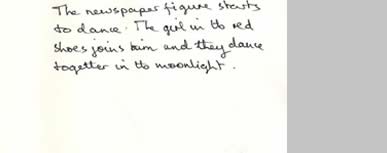 The newspaper figure starts
to dance. The girl in the red
shoes joins him and they dance
together in the moonlight.